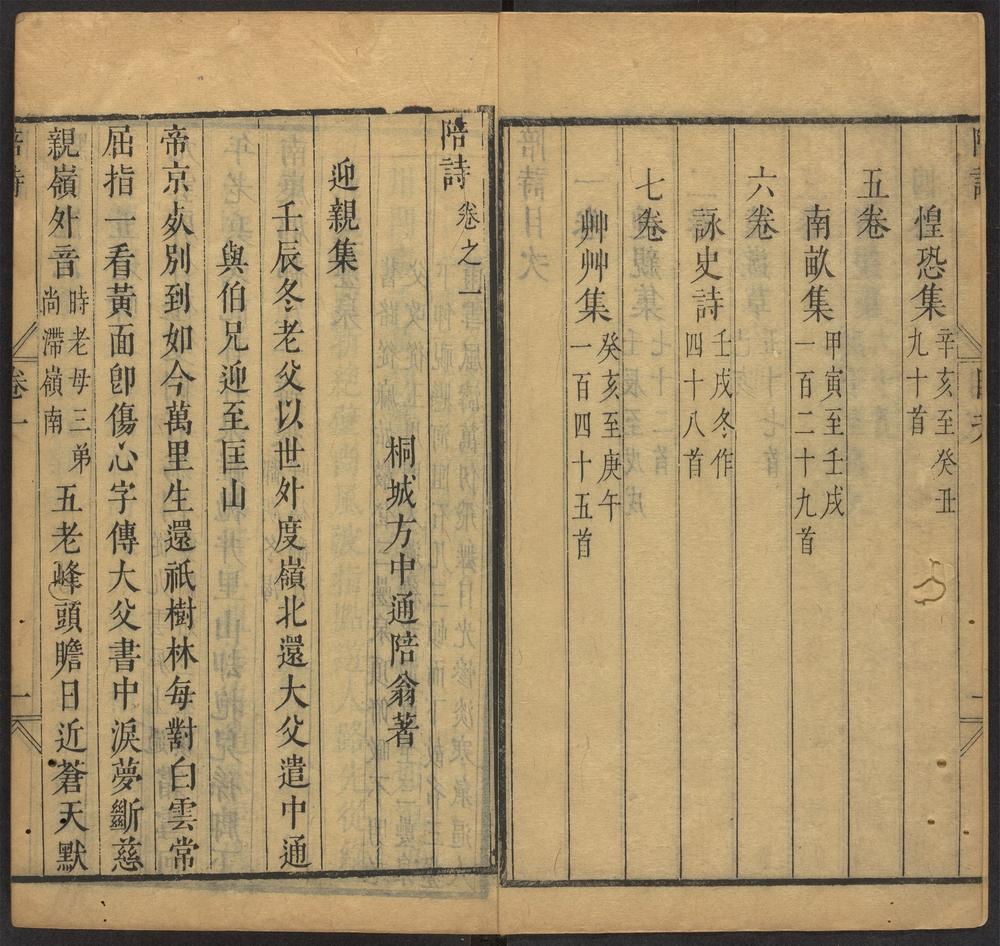 惶恐集
辛亥至癸丑
九十首
五卷
南畝集
甲寅至壬戌
一百二十九首
六卷
詠史詩
壬戌冬作
四十八首
七卷
艸艸集
癸亥至庚午
一百四十五首
陪詩 卷之一
桐城方中通陪翁著
迎親集
壬辰冬老父以世外度嶺北還大父遣中通
與伯兄迎至匡山
帝京奻別到如今萬里生還祇樹林每對白雲常
屈指一看黃面卽傷心字傳大父書中淚夢斷慈
親嶺外音
時老母三弟
尚滯嶺南
五老峰頭瞻日近蒼天默
陪詩
卷一
一